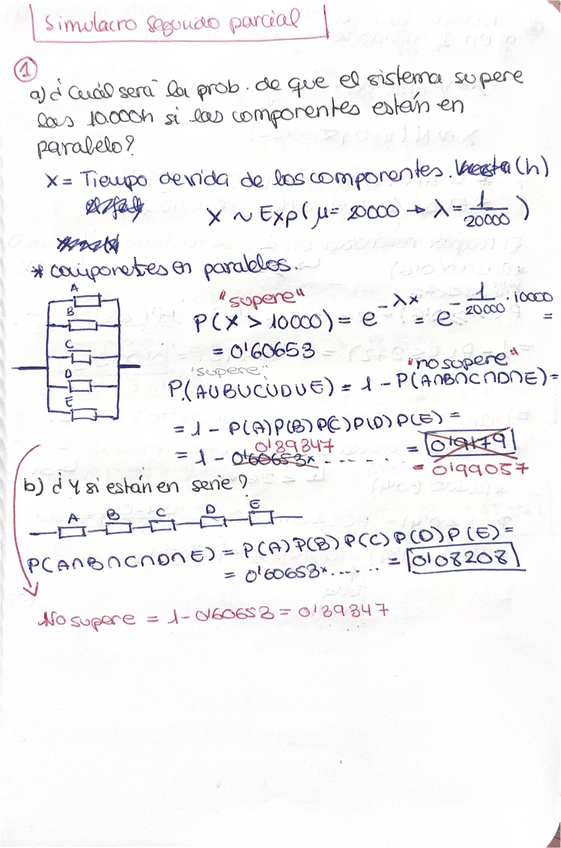 Simulacro segundo parcial
①
a) ¿Cuál será la prob. de que el sistema supere
las 10.000h si las componentes están en
paralelo?
X = Tiempo de vida de los componentes. (h)
X ~ Exp(μ = 20000 → λ = 1/20000)
* componetes en paralelos.
A
B
C
D
E
"supere"
P(X > 10000) = e^-λx = e^-1/20000·10000 =
= 0'60653
"supere" "no supere"
P(A∪B∪C∪D∪E) = 1 - P(A∩B∩C∩D∩E) =
= 1 - P(A)P(B)P(C)P(D)P(E) =
0'39347
= 1 - 0'60653* ..... = 0'9179
= 0'99057
b) ¿Y si están en serie?
A B C D E
P(A∩B∩C∩D∩E) = P(A)P(B)P(C)P(D)P(E) =
= 0'60653* ..... = 0'08208
No supere = 1 - 0'60653 = 0'39347